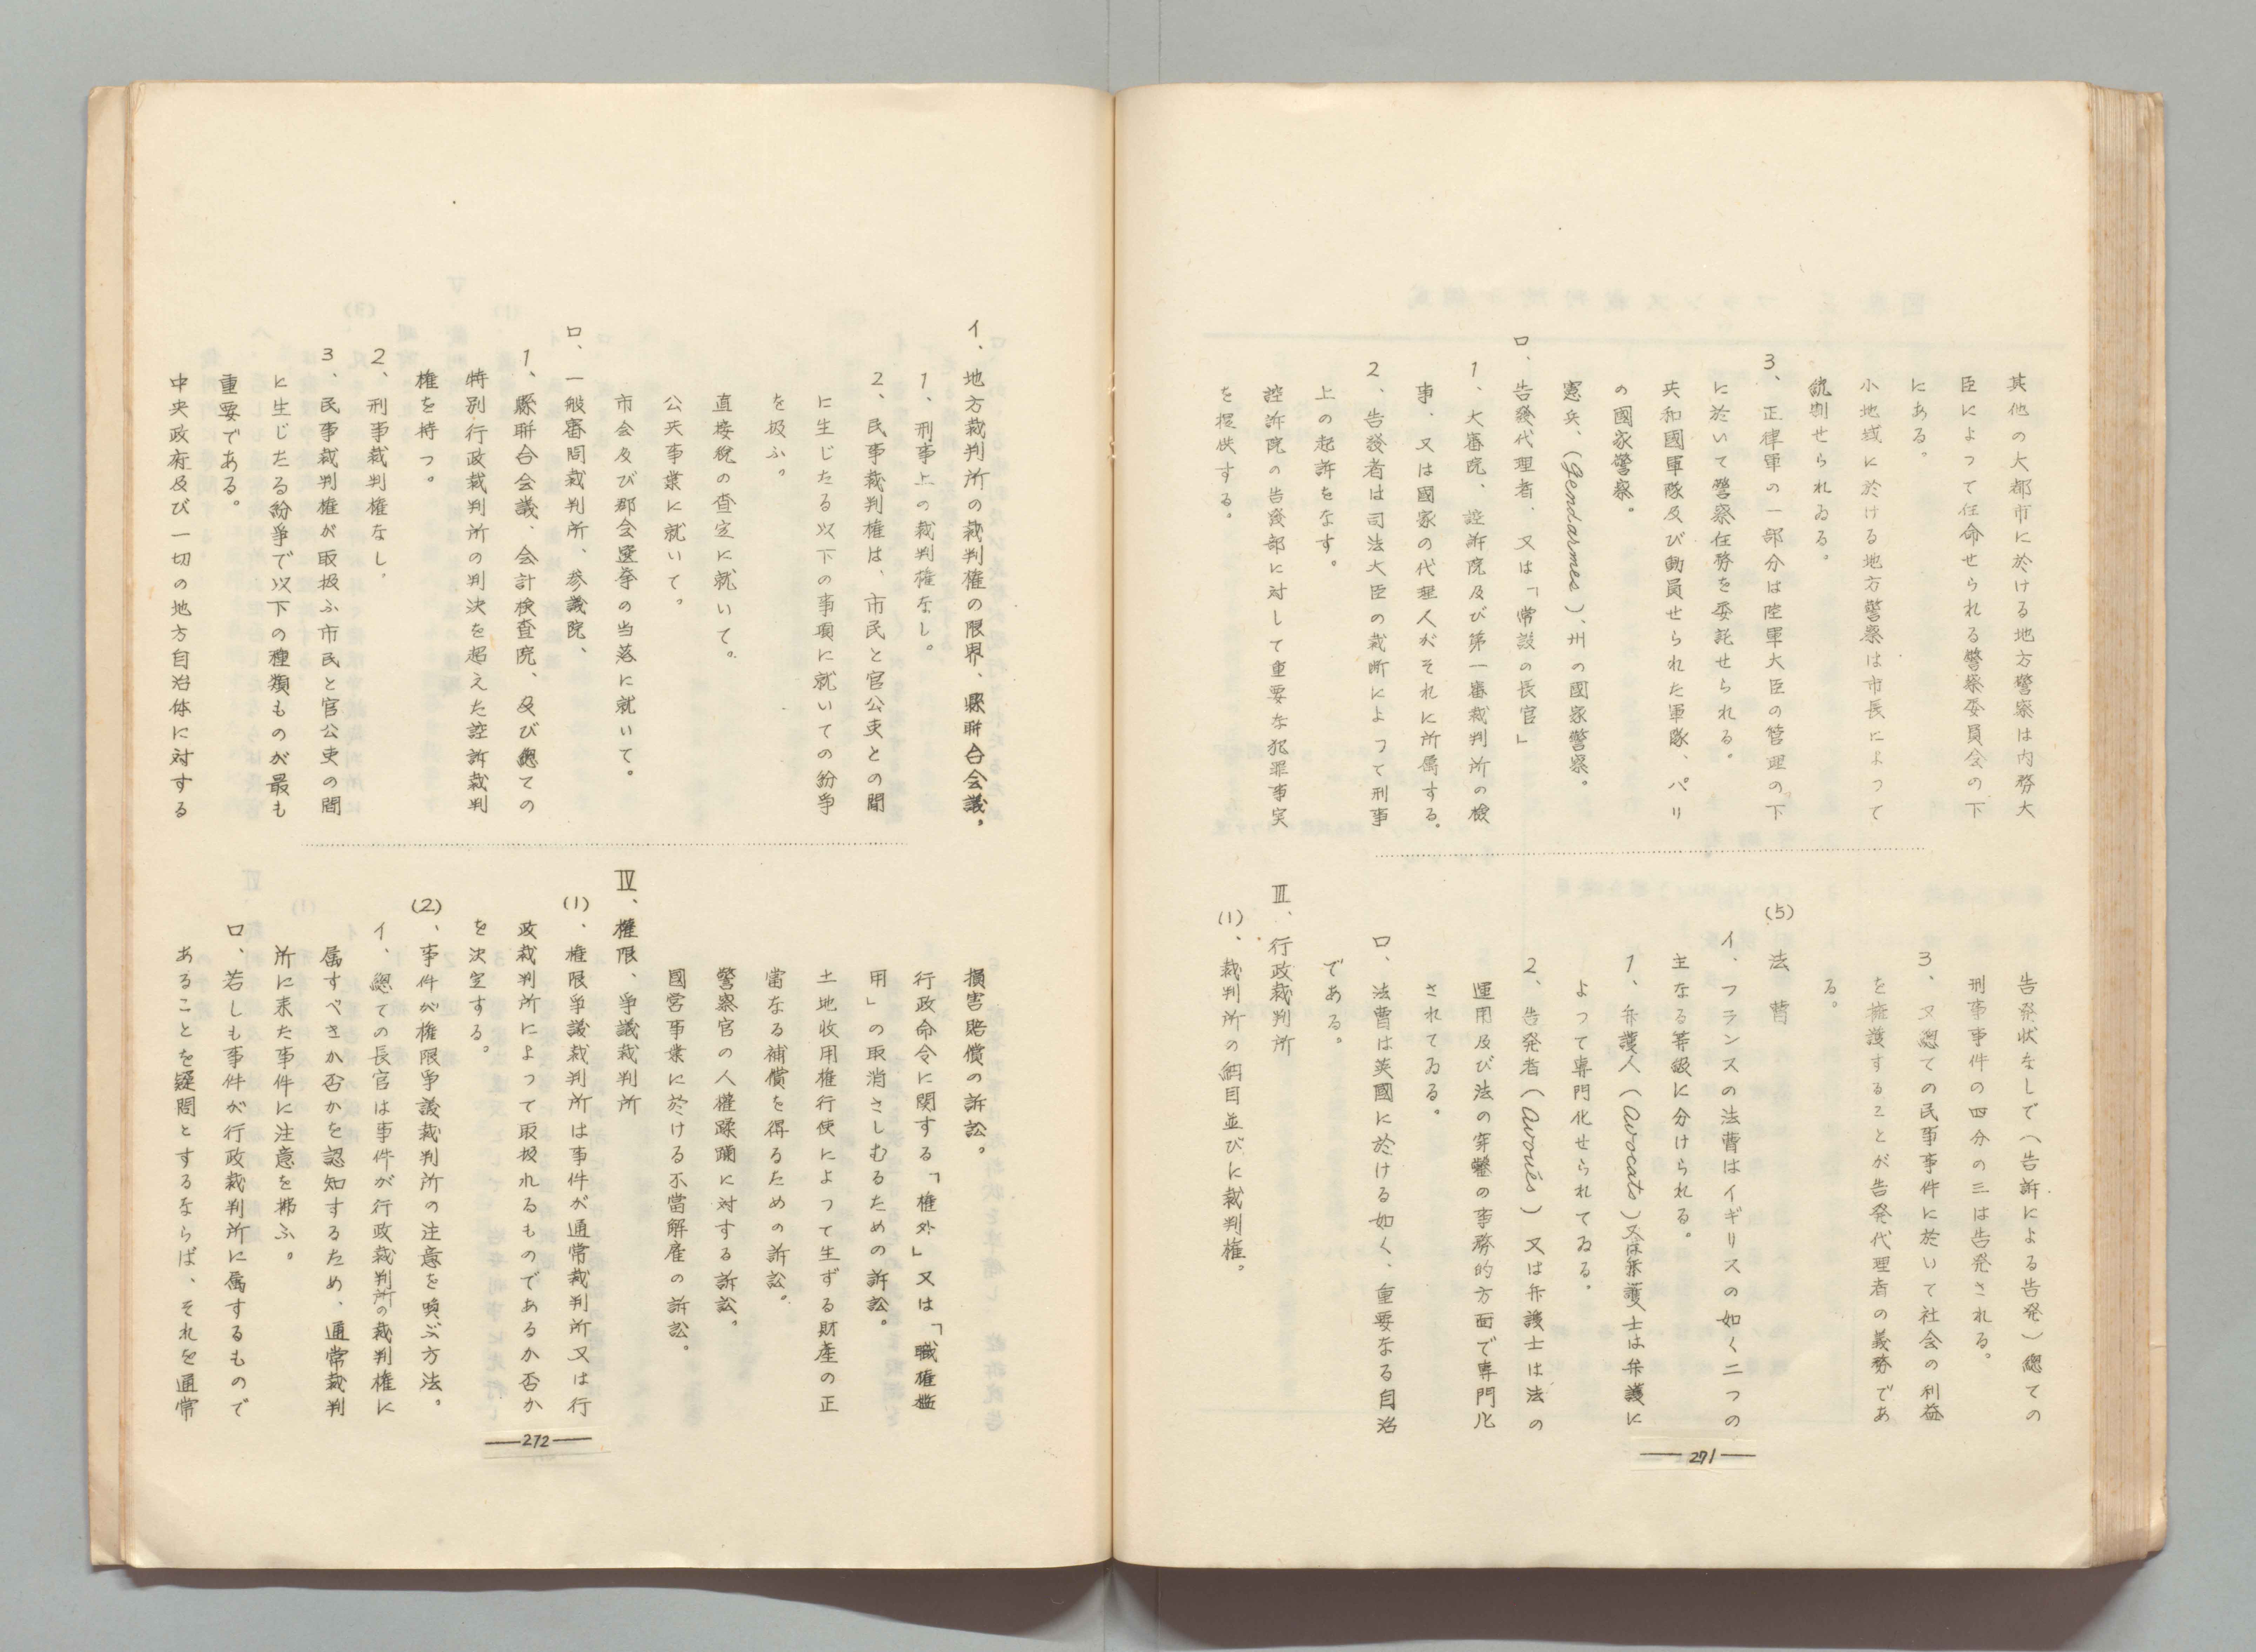 其他の大都市に於ける地方警察は内務大
臣によつて任命せられる警察委員会の下
にある。
小地域に於ける地方警察は市長によつて
統制せられゐる。
3、正律軍の一部分は陸軍大臣の管理の下
に於いて警察任務を委託せられる。
共和國軍隊及び動員せられた軍隊、パリ
の國家警察。
憲兵、(Gendarmes)、州の國家警察。
ロ、告發代理者、又は「常設の長官」
1、大審院、控訴院及び第一審裁判所の檢
事、又は國家の代理人がそれに所属する。
2、告發者は司法大臣の裁断によつて刑事
上の起訴をなす。
控訴院の告發部に対して重要な犯罪事実
を提供する。
告発状なしで(告訴による告発)總ての
刑事事件の四分の三は告発される。
3、又總ての民事事件に於いて社会の利益
を擁護することが告発代理者の義務であ
る。
(5)法曹
イ、フランスの法曹はイギリスの如く二つの
主なる等級に分けられる。
1、弁護人(Avocats)又は弁護士は弁護に
よつて専門化せられてゐる。
2、告発者(Avoués)又は弁護士は法の
運用及び法の穿鑿の事務的方面で専門化
されてゐる。
ロ、法曹は英國に於ける如く、重要なる自治
である。
Ⅲ、行政裁判所
(1)、裁判所の綱目並びに裁判権。
271
イ、地方裁判所の裁判権の限界、縣聯合会議。
1、刑事上の裁判権なし。
2、民事裁判権は、市民と官公吏との間
に生じたる以下の事項に就いての紛爭
を扱ふ。
直接税の査定に就いて。
公共事業に就いて。
市会及び郡会選挙の当落に就いて。
ロ、一般審問裁判所、参議院、
1、縣聯合会議、会計検査院、及び總ての
特別行政裁判所の判決を超えた控訴裁判
権を持つ。
2、刑事裁判権なし。
3、民事裁判権が取扱ふ市民と官公吏の間
に生じたる紛爭で以下の種類ものが最も
重要である。
中央政府及び一切の地方自治体に対する
損害賠償の訴訟。
行政命令に関する「権外」又は「職権濫
用」の取消さしむるための訴訟。
土地收用権行使によつて生ずる財産の正
當なる補償を得るための訴訟。
警察官の人権蹂躙に対する訴訟。
國営事業に於ける不當解雇の訴訟。
Ⅳ、権限、爭議裁判所
(1)、権限爭議裁判所は事件が通常裁判所又は行
政裁判所によつて取扱れるものであるか否か
を決定する。
(2)、事件が権限爭議裁判所の注意を喚ぶ方法。
イ、總ての長官は事件が行政裁判所の裁判権に
属すべきか否かを認知するため、通常裁判
所に来た事件に注意を拂ふ。
ロ、若しも事件が行政裁判所に属するもので
あることを疑問とするならば、それを通常
272